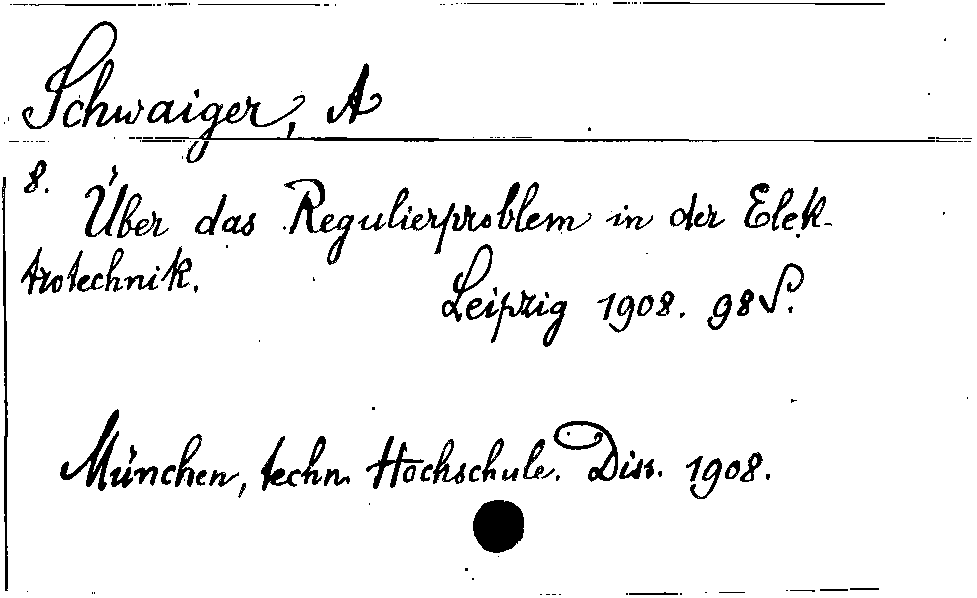 Schwaiger, A
8.
Über das Regulierproblem in der Elek-
trotechnik.
Leipzig 1908. 98 S.
München, techn. Hochschule. Diss. 1908.